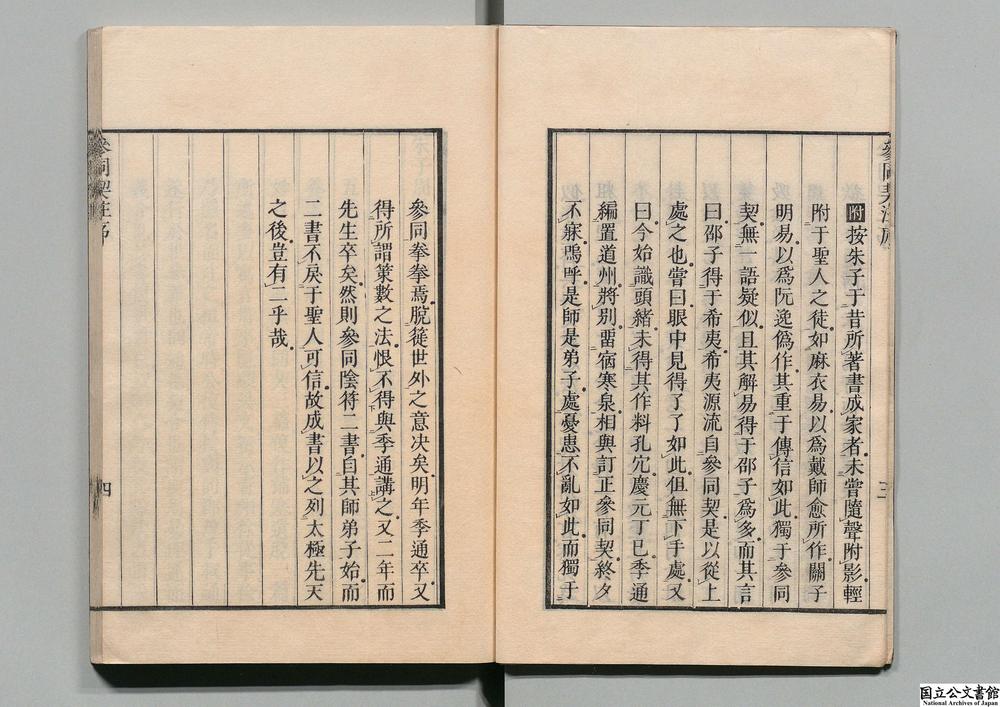 附按朱子于昔所著書成家者未嘗隨聲附影輕
附于聖人之徒如麻衣易以為戴師愈所作關子
明易以爲阮逸僞作其重于傳信如此獨于參同
契無一語疑似且其解易得于邵子爲多而其言
曰邵子得于希夷希夷源流自參同契是以從上
處之也嘗曰眼中見得了了如此但無下手處又
曰今始識頭緒未得其作料孔穴慶元丁巳季通
編置道州將別畱宿寒泉相與訂正參同契終夕
不寐嗚呼是師是弟子處憂患不亂如此而獨于
三
參同契注序
參同拳拳焉脫蹝世外之意决矣明年季通卒又
得所謂策數之法恨不得與季通講之又二年而
先生卒矣然則參同陰符二書自其師弟子始而
二書不戾于聖人可信故成書以之列太極先天
之後豈有二乎哉
參同契注序
四
国立公文書館
National Archives of Japan